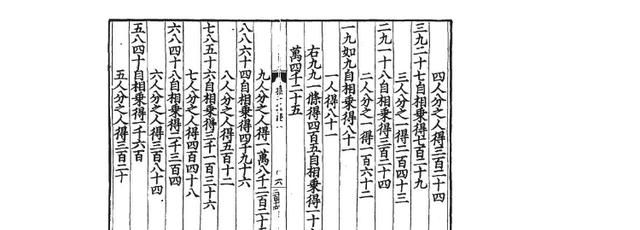 四人分之人得三百二十四
三九二十七自相乘得七百二十九
三人分之一得二百四十三
二九一十八自相乘得三百二十四
二人分之一得一百六十二
一九如九自相乘得八十一
一人得八十一
右九九一條得四百五自相乘得一十
萬四千二十五
九人分之人得一萬八千二百二十
八八六十四自相乘得四千九十六
八人分之人得五百十二
七八五十六自相乘得三千一百三十六
七人分之人得四百四十八
六八四十八自相乘得二千三百四
六人分之人得三百八十四
五八四十自相乘得一千六百
五人分之人得三百二十